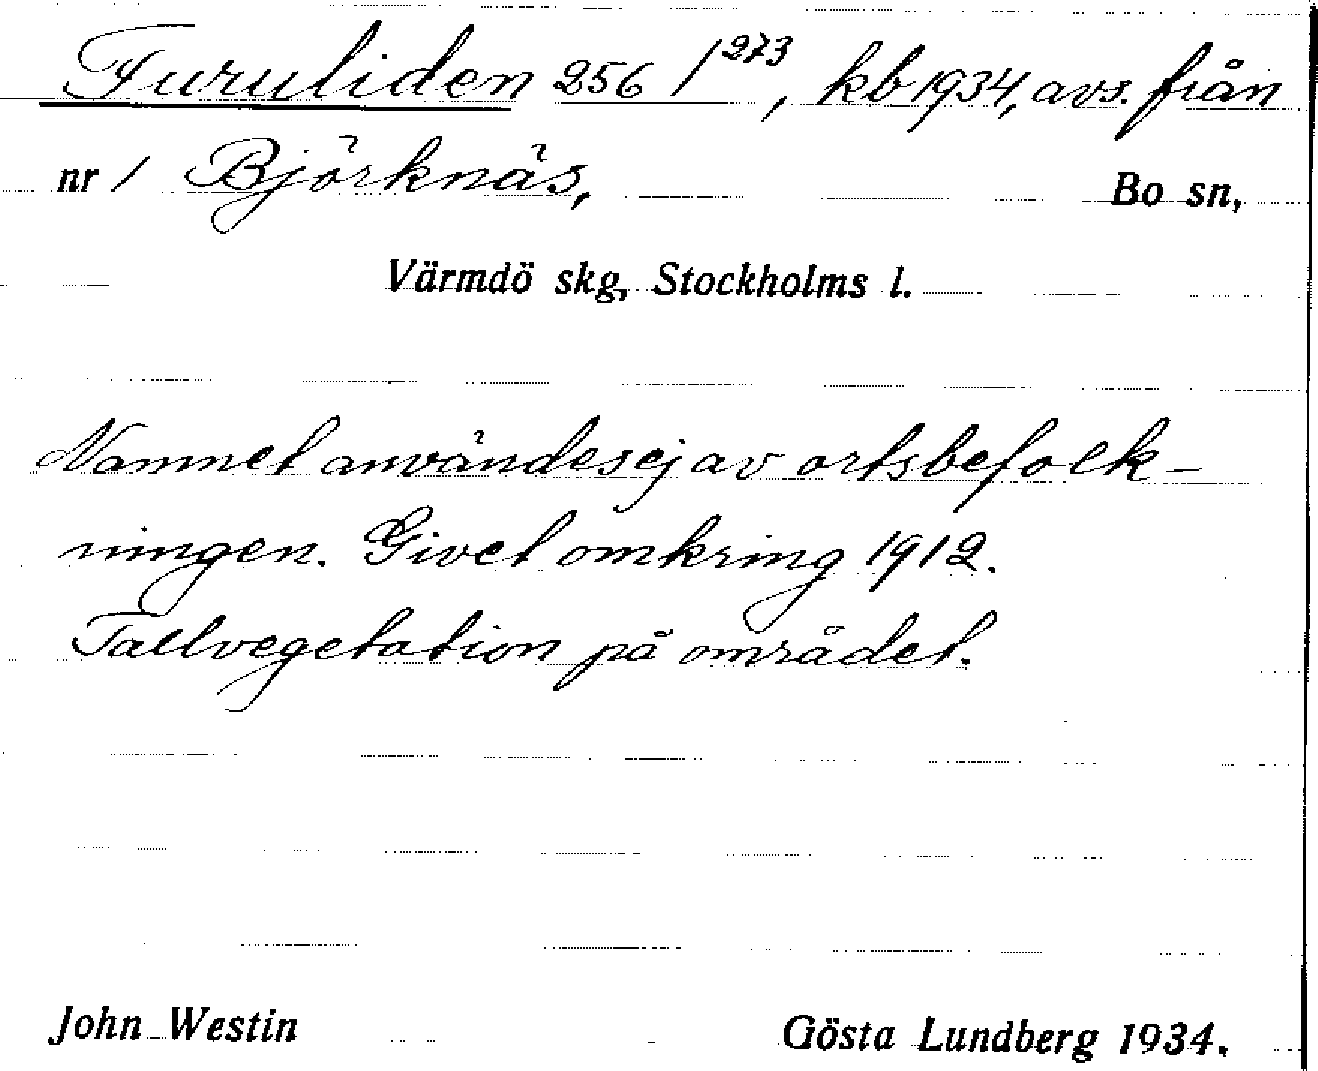 Furuliden 256 1²⁷³, kb 1934, avs. från
nr 1 Björknäs, Bo sn,
Värmdö skg, Stockholms l.
Namnet användes ej av ortsbefolk-
ningen. Givet omkring 1912.
Tallvegetation på området.
John Westin Gösta Lundberg 1934.